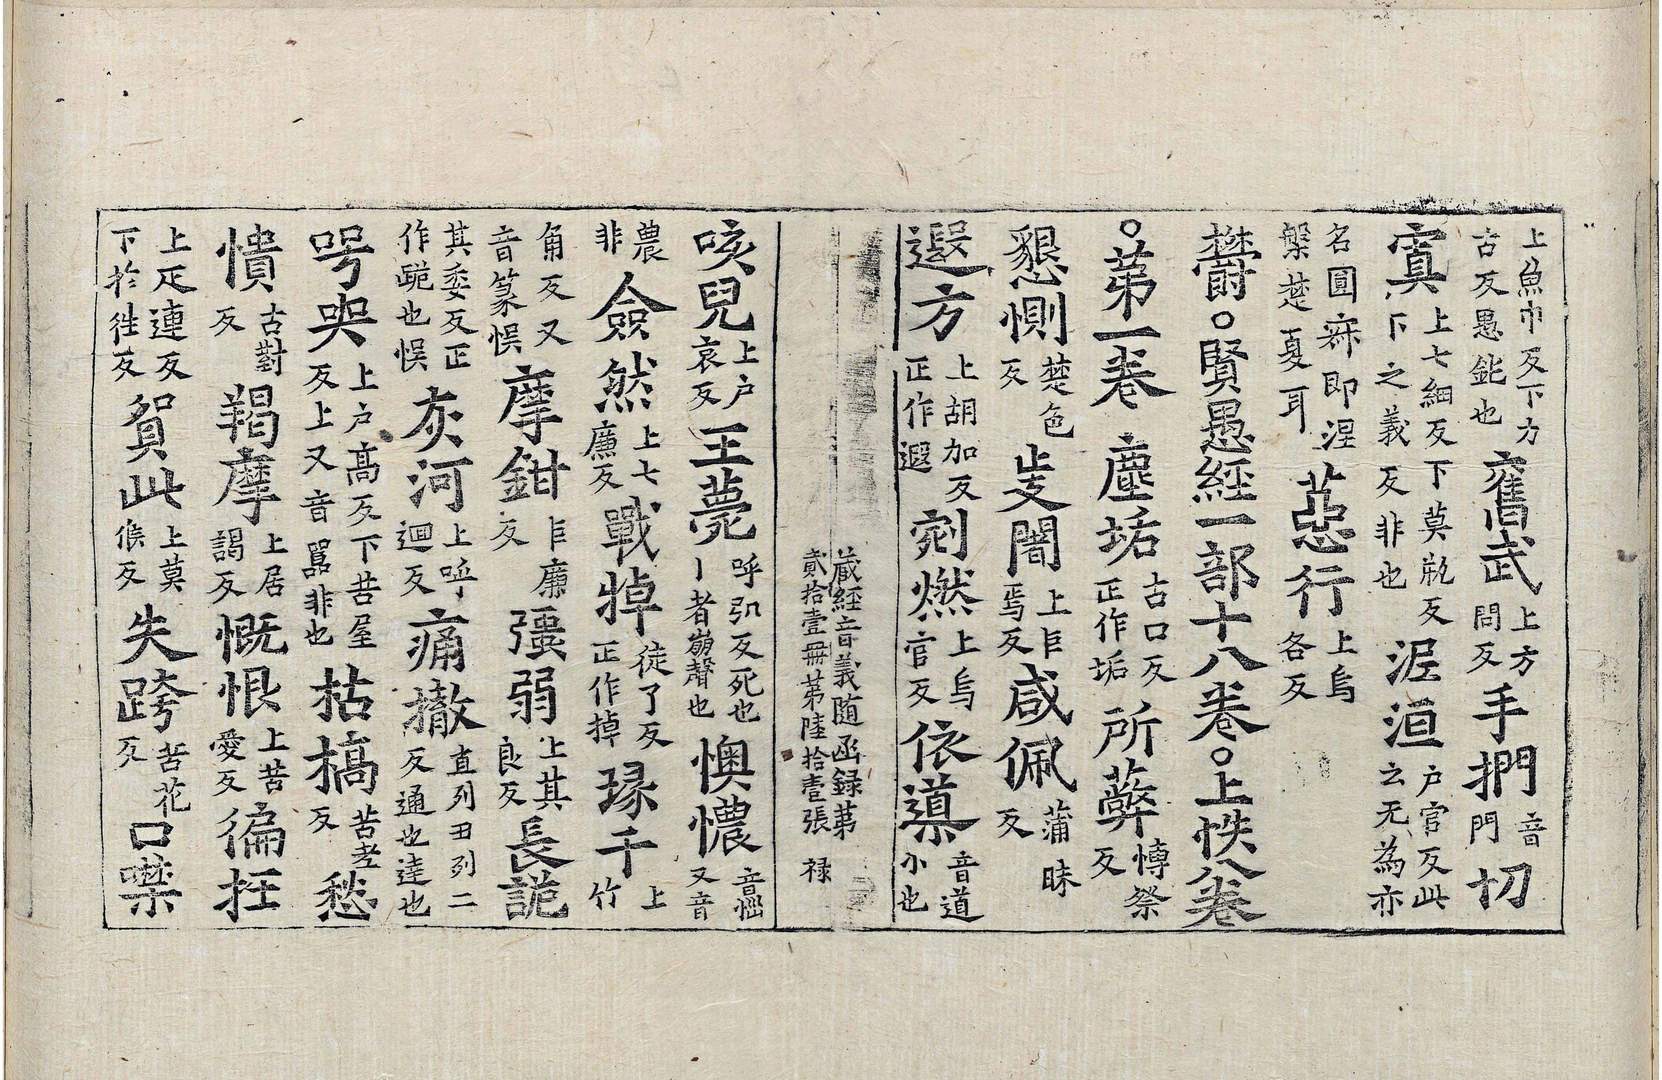 上魚巾反下方古反愚鈍也舊武上方問反手捫音門切
寘上七細反下莫瓶反下之義反非也泥洹戶官反此云无為亦
名圓寂即涅槃楚夏耳惡行上烏各反
欝。賢愚經一部十八卷。上帙八卷
。苐一卷塵垢古口反正作垢所蔽博祭反
懇惻楚色反𡕗闇上乍焉反咸佩蒲昧反
遐方上胡加反正作遐剜燃上烏官反依導音道小也
藏經音義随函録苐
貳拾壹冊苐陸拾壹張 禄
咳兒上户哀反王薨呼弘反死也丨者崩聲也懊憹音㤇又音
農非僉然上七廉反戰悼徒了反正作掉瑑千上竹
角反又音篆悮摩鉗巨廉反彊弱上其良反長跪
其委反正作跪也悮灰河上呼迴反痛撤直列丑列二反通也逹也
号哭上户高反下苦屋反上又音嚣非也枯槁苦孝反愁
憒古對反羯摩上居謁反慨恨上苦愛反徧抂
上疋連反下於往反貿此上莫候反失跨苦花反口噤